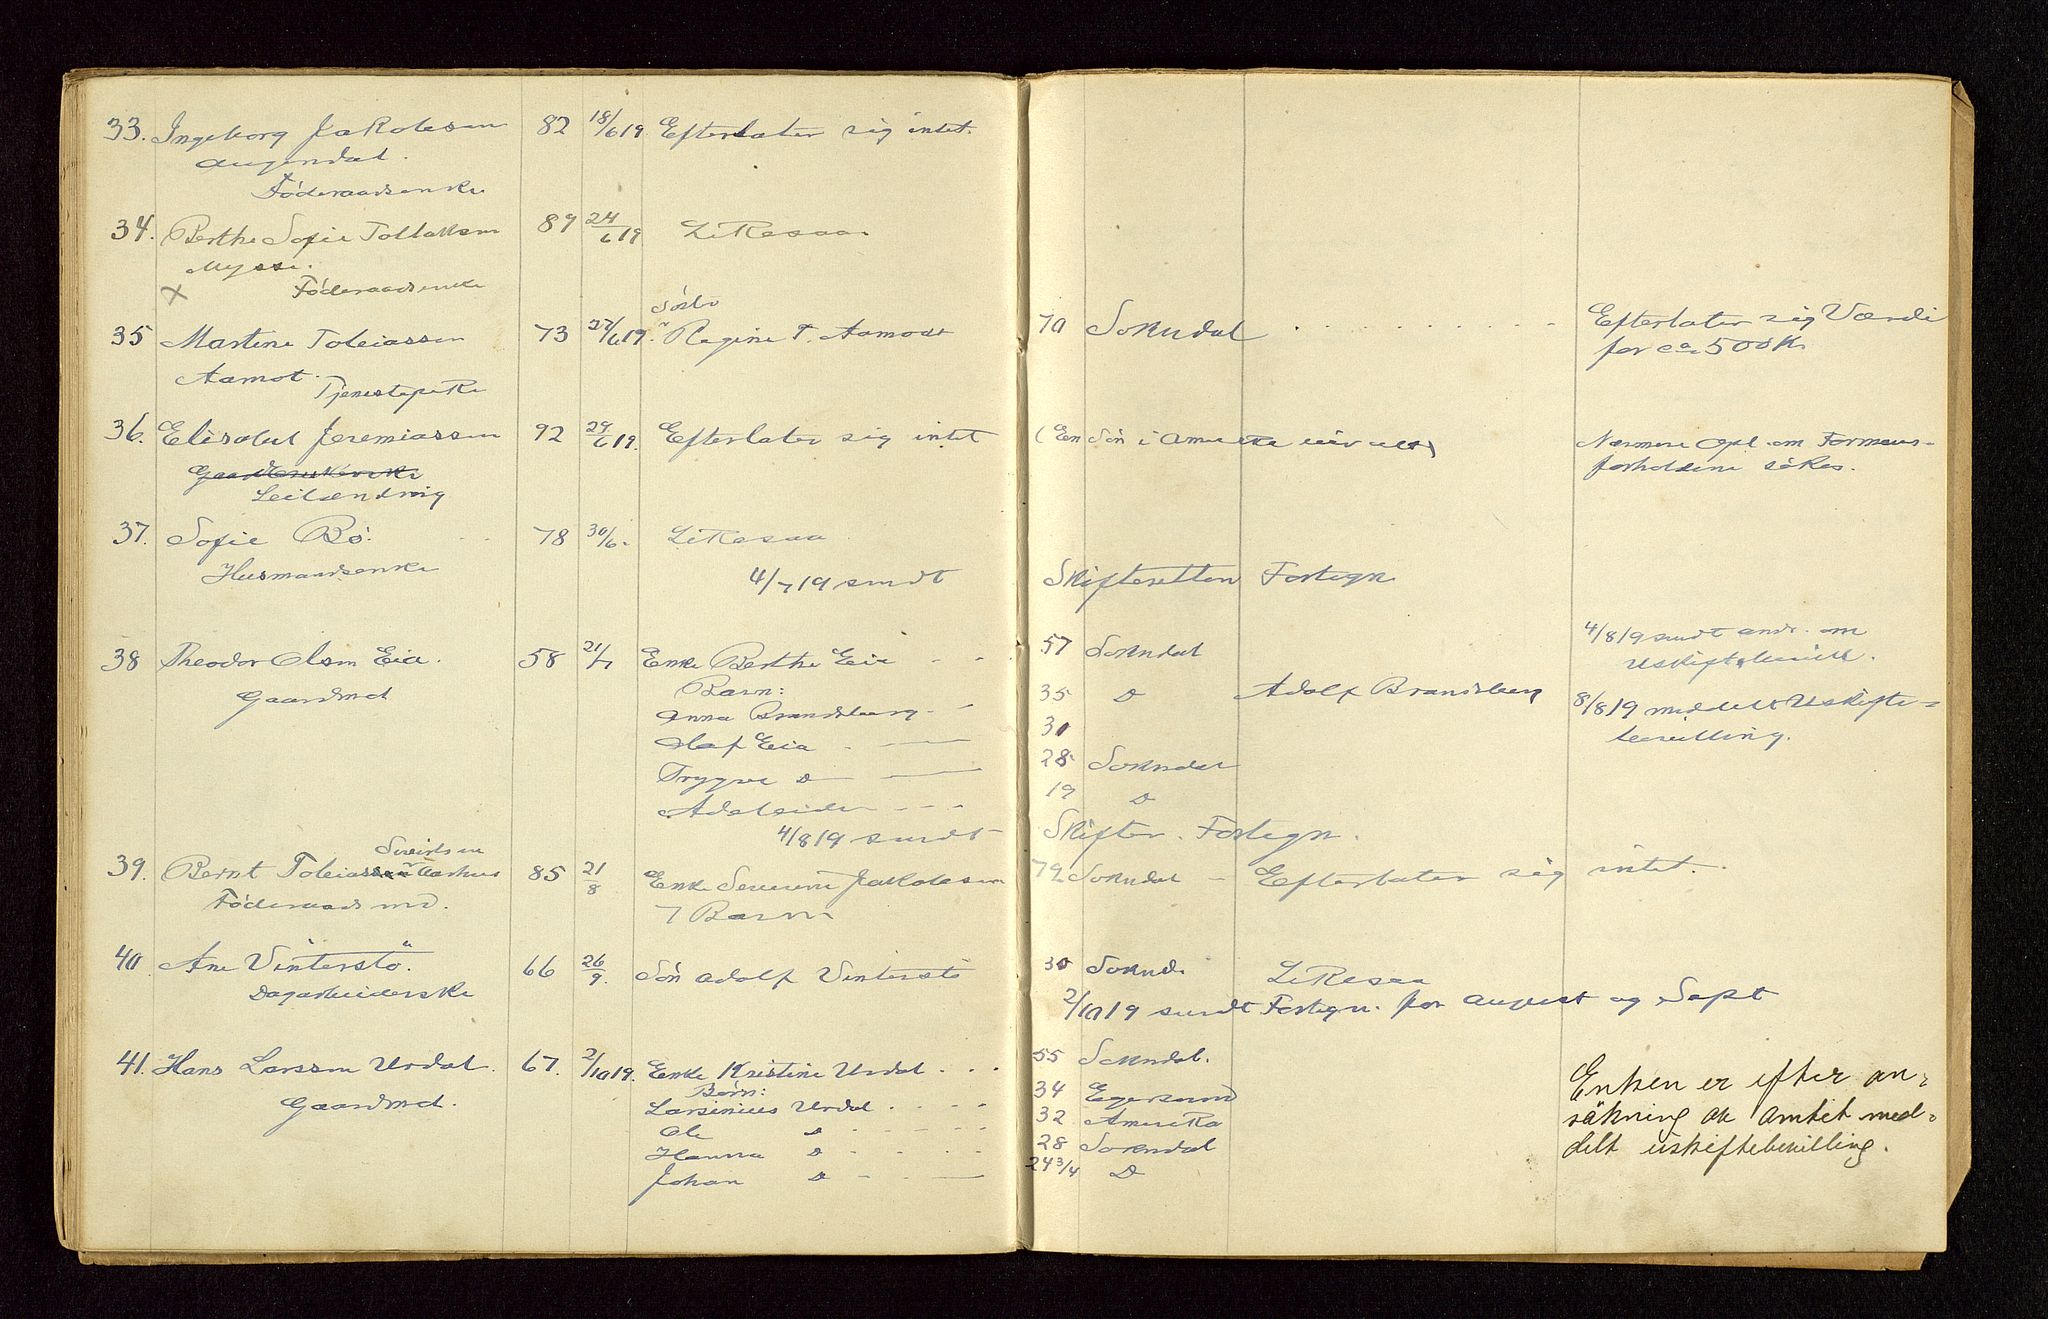 33. Ingeborg Jakobsen 82 18/6 19. Efterlater sig intet.
Augendal.
Föderaadsenke
34. Berthe Sofie Tollaksen 89 24/6 19 Likesaa
Mysse.
x Föderaadsenke
Söster
35 Martine Tobiassen 73 27/6 19. Regine T. Aamodt 70 Sokndal . . . . . . . . . . Efterlater sig Værdi
for ca 500 Kr
Aamot.
Tjenestepike
36. Elisabet Jeremiassen 92 29/6 19. Efterlater sig intet (En Sön i Amerika Nærmere Opl. om Formues-
forholdene sökes.
Leilænding
37. Sofie Bö. 78 30/6. Likesaa
Husmandsenke
4/7 19 sendt Skifteretten Fortegn
38 Theodor Olsen Eia. 58 21/7 Enke Berthe Eia - - 57 Sokndal 4/8 19 sendt andr. om
Uskiftebevill.
Gaardmd Barn:
Anna Brandsberg - - 35 D Adolf Brandsberg 8/8 19 meddelt Uskifte-
bevilling.
Olaf Eia - - 30
Trygve D - 28 Sokndal
Adeleide - - - 19 D
4/8 19 sendt Skifter. Fortegn.
Sivertsen
39. Bernt Tobiassen Aarhus 85 21/8 Enke Severine Jakobsen 79 Sokndal - Efterlater sig intet.
Föderaadsmd. 7 Barn
40 Ane Vinterstö. 66 26/9. Sön Adolf Vinterstö 30 Soknd. Likesaa
Dagarbeiderske
2/10 19 sendt Fortegn. for August og Sept
41. Hans Larssen Urdal. 67. 2/10 19. Enke Kristine Urdal . . . 55 Sokndal.
Gaardmd. Børn:
Larsinius Urdal . - - - 34 Egersund
Ole D - - - - 32 Amerika
Hanna D - - - - 28 Sokndal
Johan D - - - 24 3/4 D
Enken er efter an-
søkning av Amtet med-
delt uskiftebevilling.